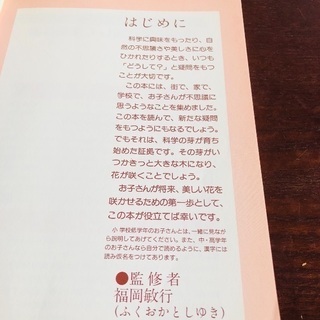 はじめに
科学に興味をもったり、自
然の不思議さや美しさに心を
ひかれたりするとき、いつも
「どうして？」と疑問をもつ
ことが大切です。
この本には、街で、家で、
学校で、お子さんが不思議に
思うようなことを集めました。
この本を読んで、新たな疑問
をもつようにもなるでしょう。
でもそれは、科学の芽が育ち
始めた証拠です。その芽がい
つかきっと大きな木になり、
花が咲くことでしょう。
お子さんが将来、美しい花を
咲かせるための第一歩として、
この本が役立てば幸いです。
小学校低学年のお子さんとは、一緒に見なが
ら説明してあげてください。また、中・高学年
のお子さんなら自分で読めるように、漢字には
読み仮名をつけてあります。
●監修者
福岡敏行
(ふくおかとしゆき)